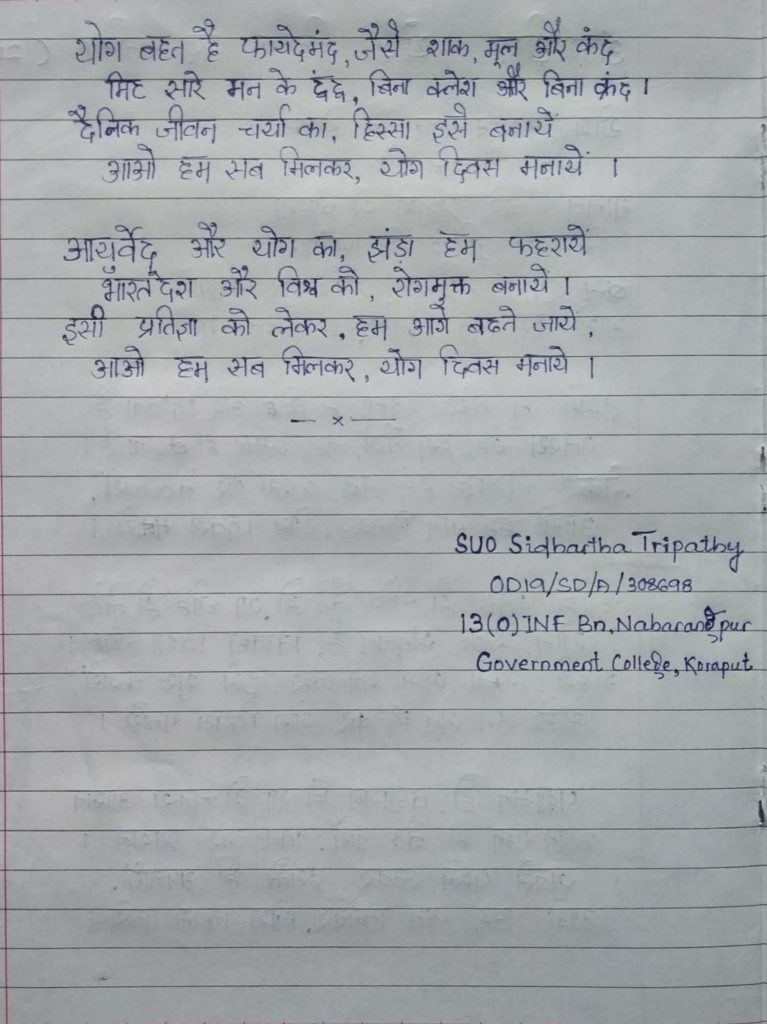 योग बहुत है फायदेमंद, जैसे शाक, मूल और कंद
मिट सारे मन के द्वंद्व, बिना क्लेश और बिना क्रंद ।
दैनिक जीवन चर्या का, हिस्सा इसे बनायें
आओ हम सब मिलकर, योग दिवस मनायें ।
आयुर्वेद और योग का, झंड़ा हम फहरायें
भारतदेश और विश्व को, रोगमुक्त बनाये ।
इसी प्रतिज्ञा को लेकर, हम आगे बढते जाये,
आओ हम सब मिलकर, योग दिवस मनाये ।
— x —
SUO Sidhartha Tripathy
OD19/SD/A/308698
13(O) INF Bn, Nabarangpur
Government College, Koraput